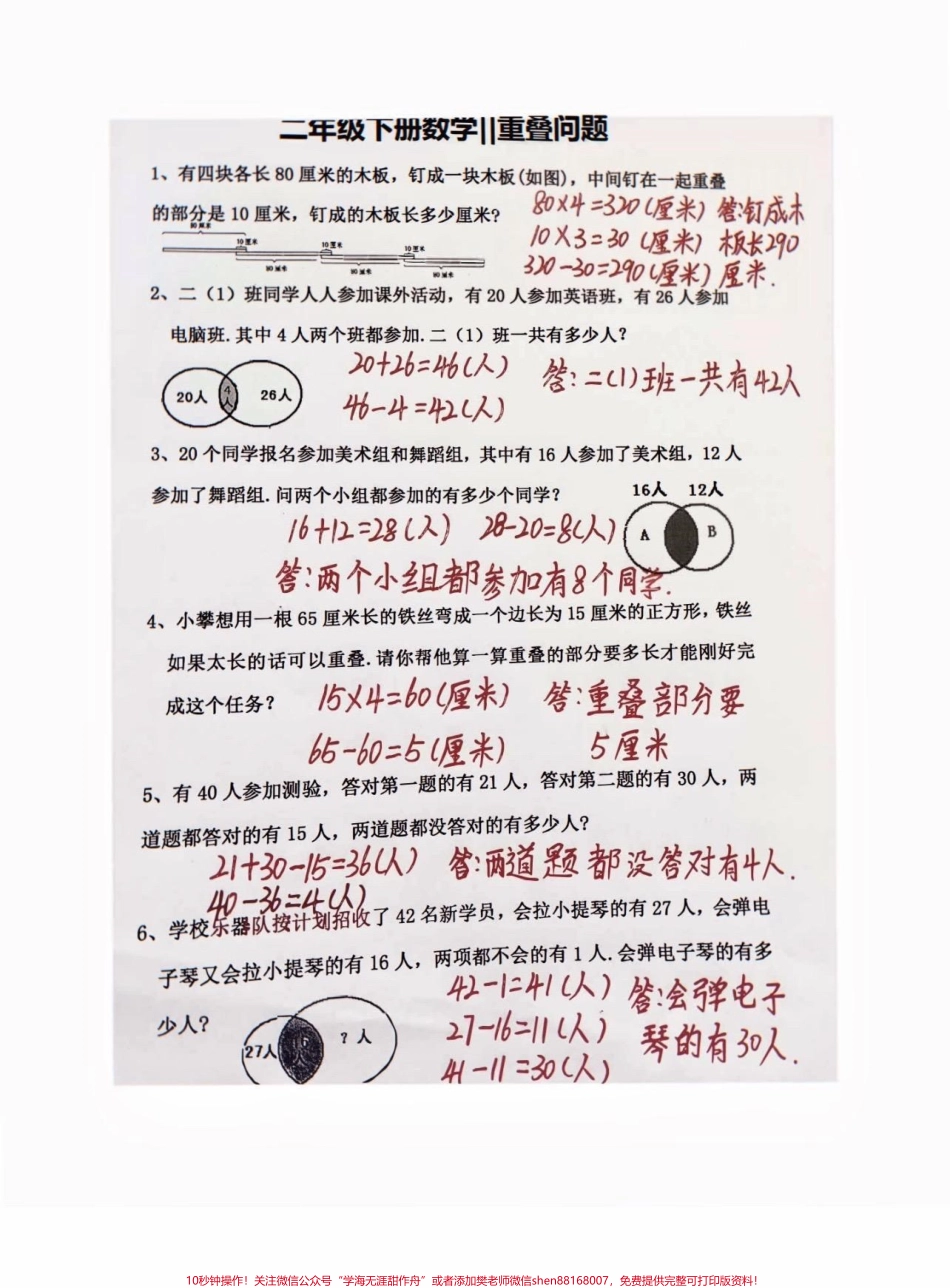 二年级下册数学||重叠问题
1、有四块各长 80 厘米的木板，钉成一块木板(如图)，中间钉在一起重叠
的部分是 10 厘米，钉成的木板长多少厘米?
80×4=320(厘米) 答:钉成木
10×3=30(厘米) 板长290
320-30=290(厘米) 厘米.
80 厘米
10 厘米 10 厘米 10 厘米
80 厘米 80 厘米 80 厘米
2、二（1）班同学人人参加课外活动，有 20 人参加英语班，有 26 人参加
电脑班.其中 4 人两个班都参加.二（1）班一共有多少人？
20+26=46(人) 答:二(1)班一共有42人
46-4=42(人)
20人 4人 26人
3、20 个同学报名参加美术组和舞蹈组，其中有 16 人参加了美术组，12 人
参加了舞蹈组.问两个小组都参加的有多少个同学？
16人 12人
A B
16+12=28(人) 28-20=8(人)
答:两个小组都参加有8个同学.
4、小攀想用一根 65 厘米长的铁丝弯成一个边长为 15 厘米的正方形，铁丝
如果太长的话可以重叠.请你帮他算一算重叠的部分要多长才能刚好完
成这个任务？
15×4=60(厘米) 答:重叠部分要
65-60=5(厘米) 5厘米
5、有 40 人参加测验，答对第一题的有 21 人，答对第二题的有 30 人，两
道题都答对的有 15 人，两道题都没答对的有多少人?
21+30-15=36(人) 答:两道题都没答对有4人.
40-36=4(人)
6、学校乐器队按计划招收了 42 名新学员，会拉小提琴的有 27 人，会弹电
子琴又会拉小提琴的有 16 人，两项都不会的有 1 人.会弹电子琴的有多
少人？
42-1=41(人) 答:会弹电子
27-16=11(人) 琴的有30人.
41-11=30(人)
27人 16人 ？人
10秒钟操作！关注微信公众号“学海无涯甜作舟”或者添加樊老师微信shen88168007，免费提供完整可打印版资料！